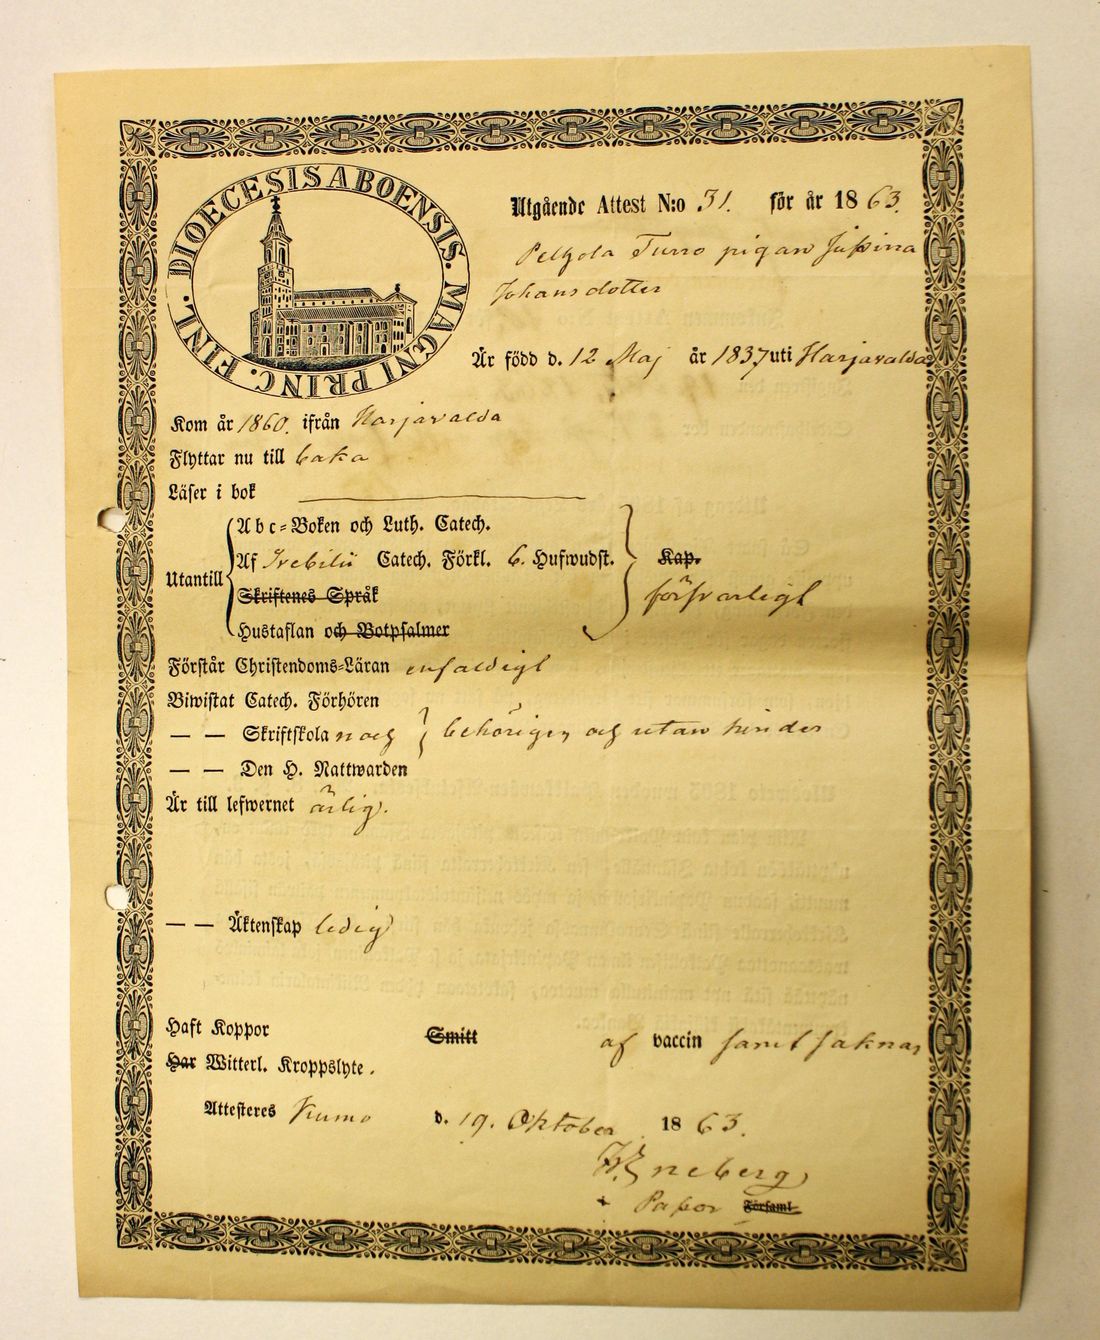 DIOECESIS ABOENSIS. MAGNI PRINC. FINL.
Utgående Attest N:o 31. för år 1863.
Peltola Turro pigan Justina
Johansdotter
Är född d. 12 Maj år 1837 uti Harjavalda
Kom år 1860. ifrån Harjavalda
Flyttar nu till
Läser i bok
Abc-Boken och Luth. Catech.
Utantill Af Svebilii Catech. Förkl. 6. Hufwudst. Kap.
Skriftenes Språk försvarligt
Hustaflan och Botpsalmer
Förstår Christendoms-Läran enfaldigt
Biwistat Catech. Förhören
— — Skriftskola och behörigen och utan hinder
— — Den H. Nattwarden
Är till lefwernet ärlig.
— — Äktenskap ledig
Haft Koppor Smitt af vaccin samt saknar
Har Witterl. Kroppslyte.
Attesteres Kumo d. 19. Oktober 1863.
Eneberg
Pastor Församl.